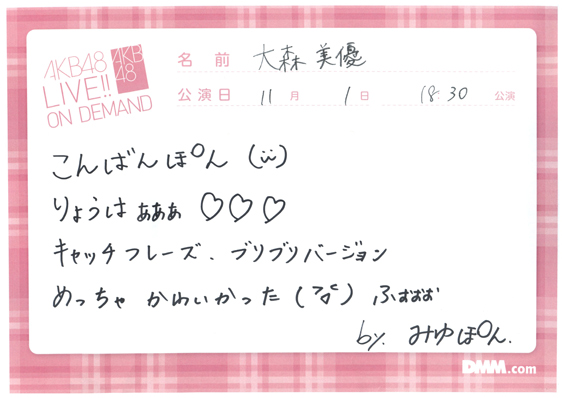 AKB48
LIVE!!
ON DEMAND
AKB
48
名前 大森美優
公演日 11月 1日 18:30 公演
こんばんほ゜ん (ü)
りょうは ぁぁぁ ♡♡♡
キャッチフレーズ、ブリブリバージョン
めっちゃ かわいかった ( ) ふぉぉぉ
by. みゆほ゜ん.
DMM.com